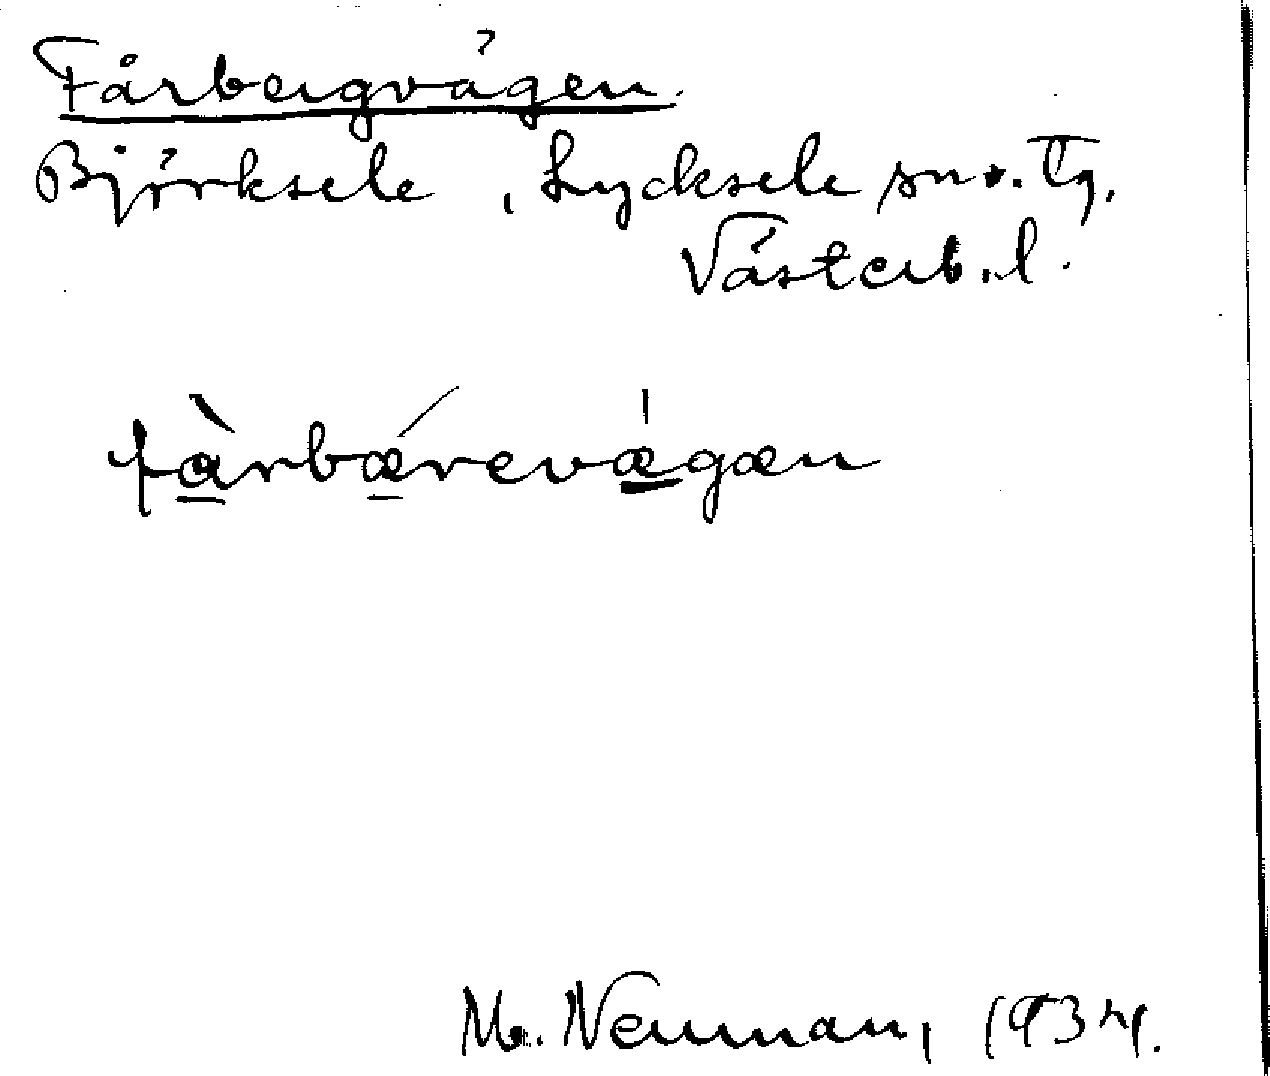 Fårbergvägen.
Björksele, Lycksele sn o. Tg.
Västerb. l.
fàrbǽrevægæn
M. Neuman, 1934.